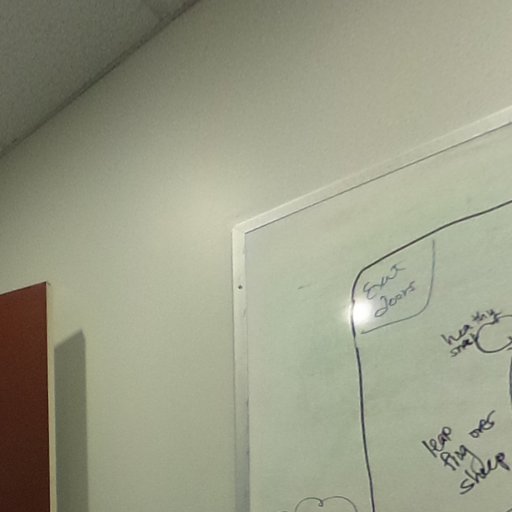 Exit
doors
healthy
snack
leap
fing over
sheep